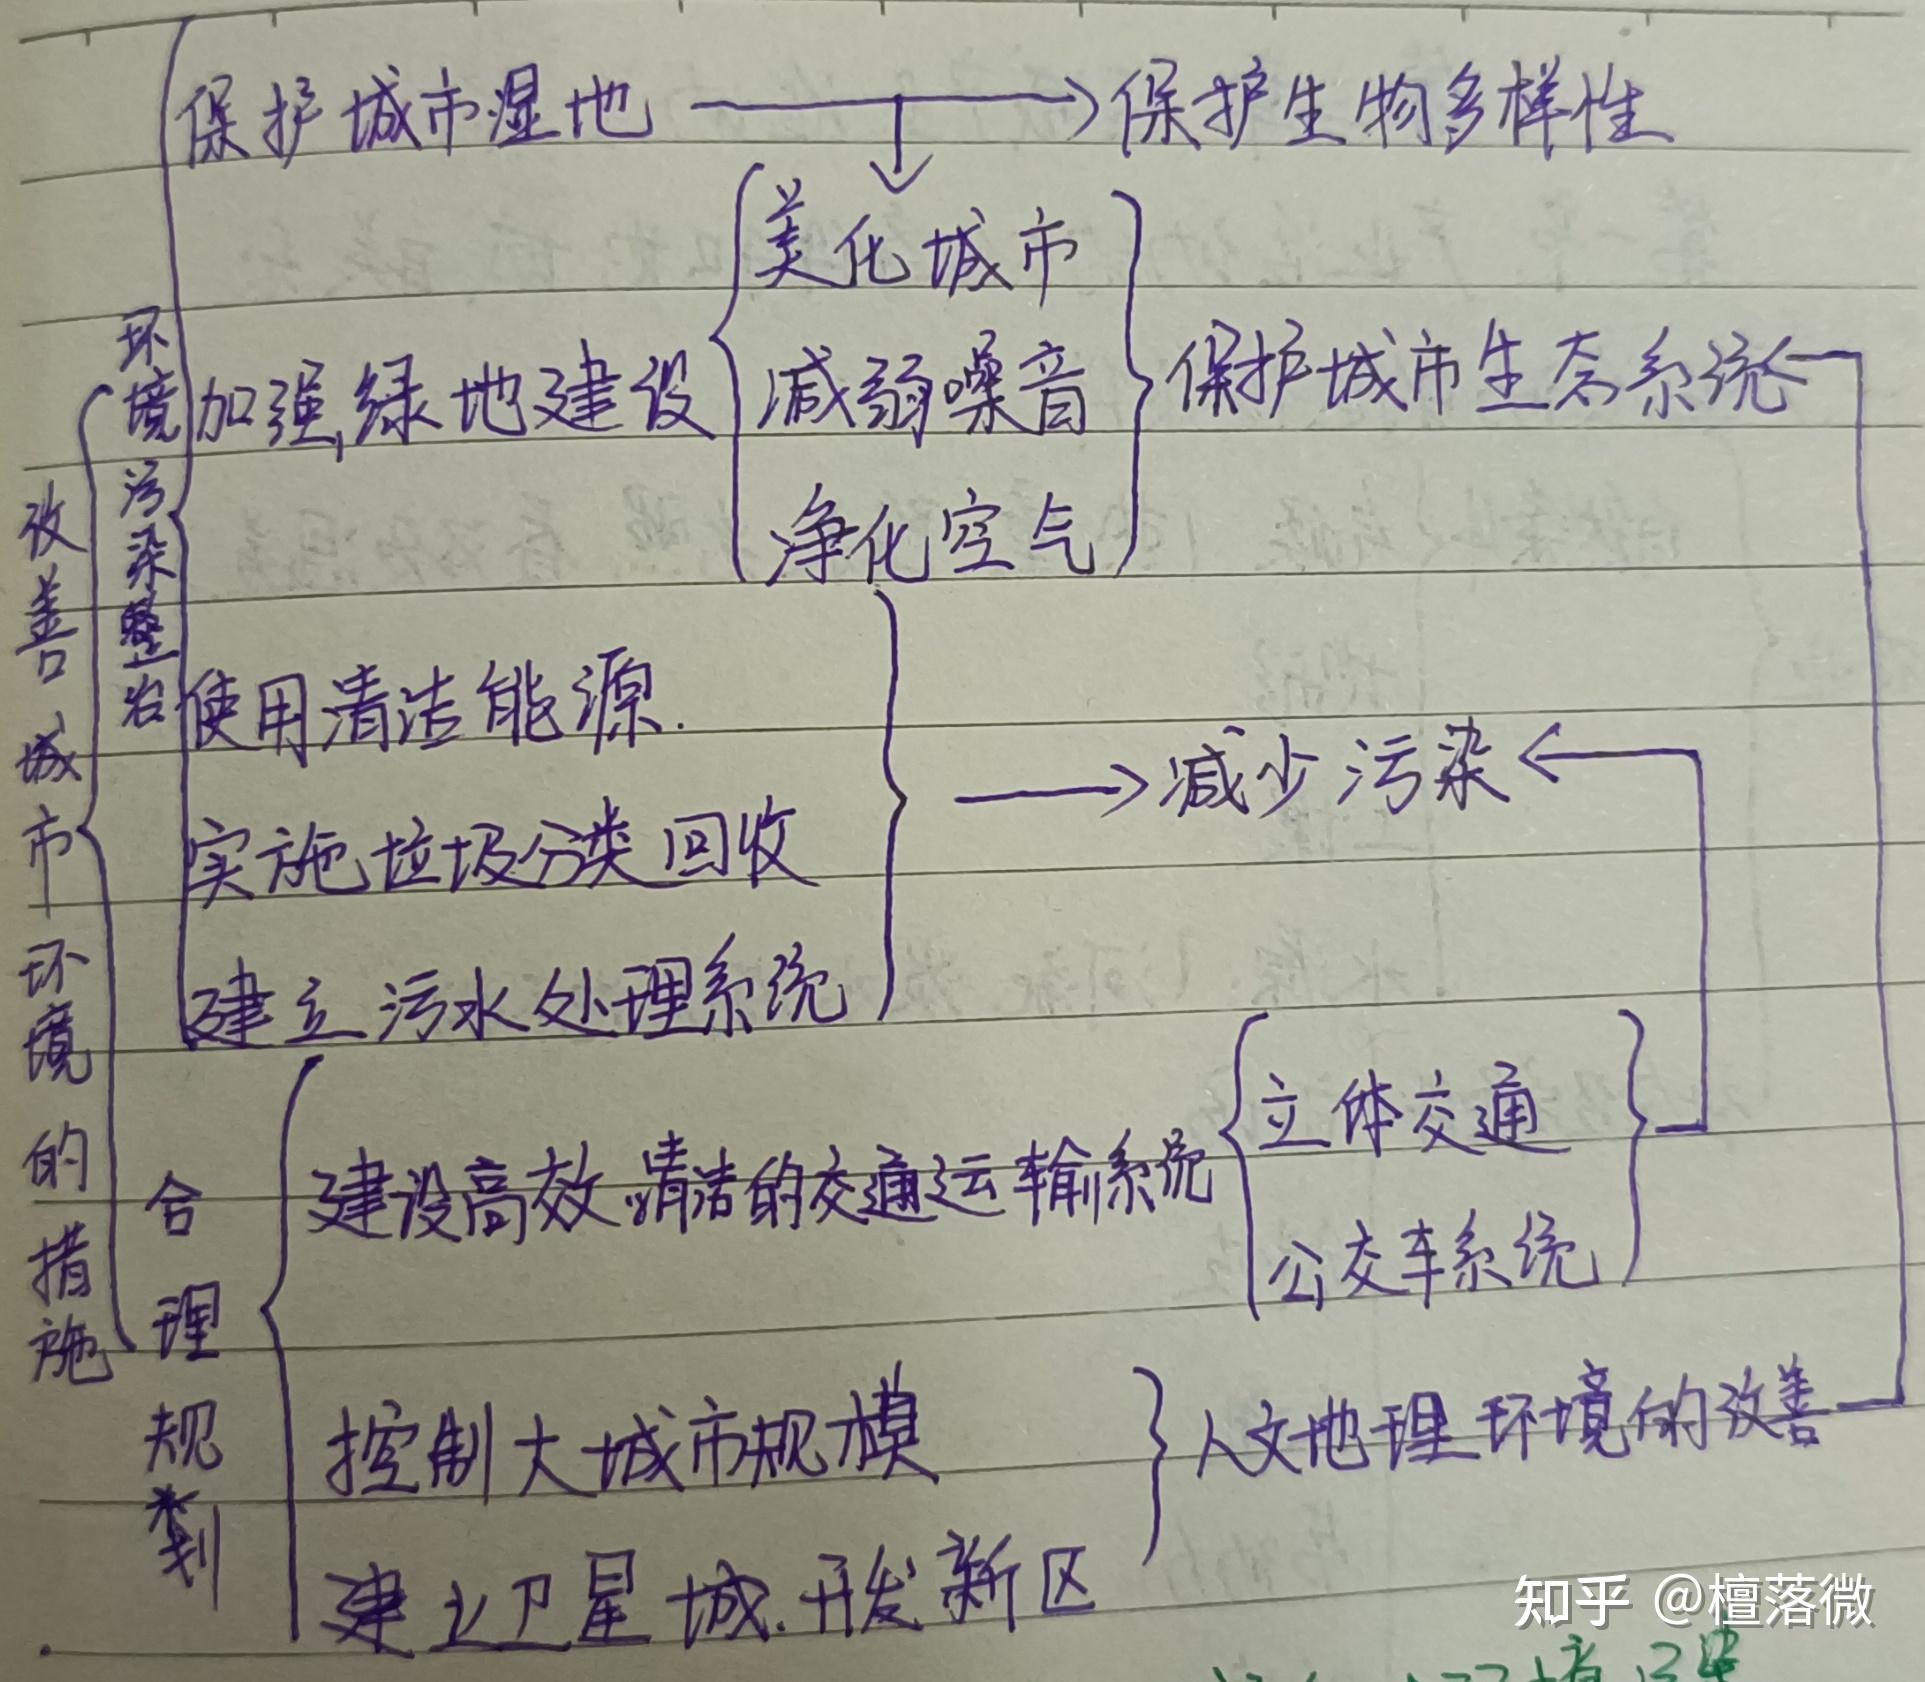 保护城市湿地 保护生物多样性
美化城市
加强绿地建设 减弱噪音 保护城市生态系统
净化空气
环境污染整治
改善城市环境的措施
使用清洁能源.
减少污染
实施垃圾分类回收
建立污水处理系统
立体交通
建设高效.清洁的交通运输系统
公交车系统
合理规划
控制大城市规模 人文地理环境的改善
建立卫星城.开发新区
知乎 @檀落微